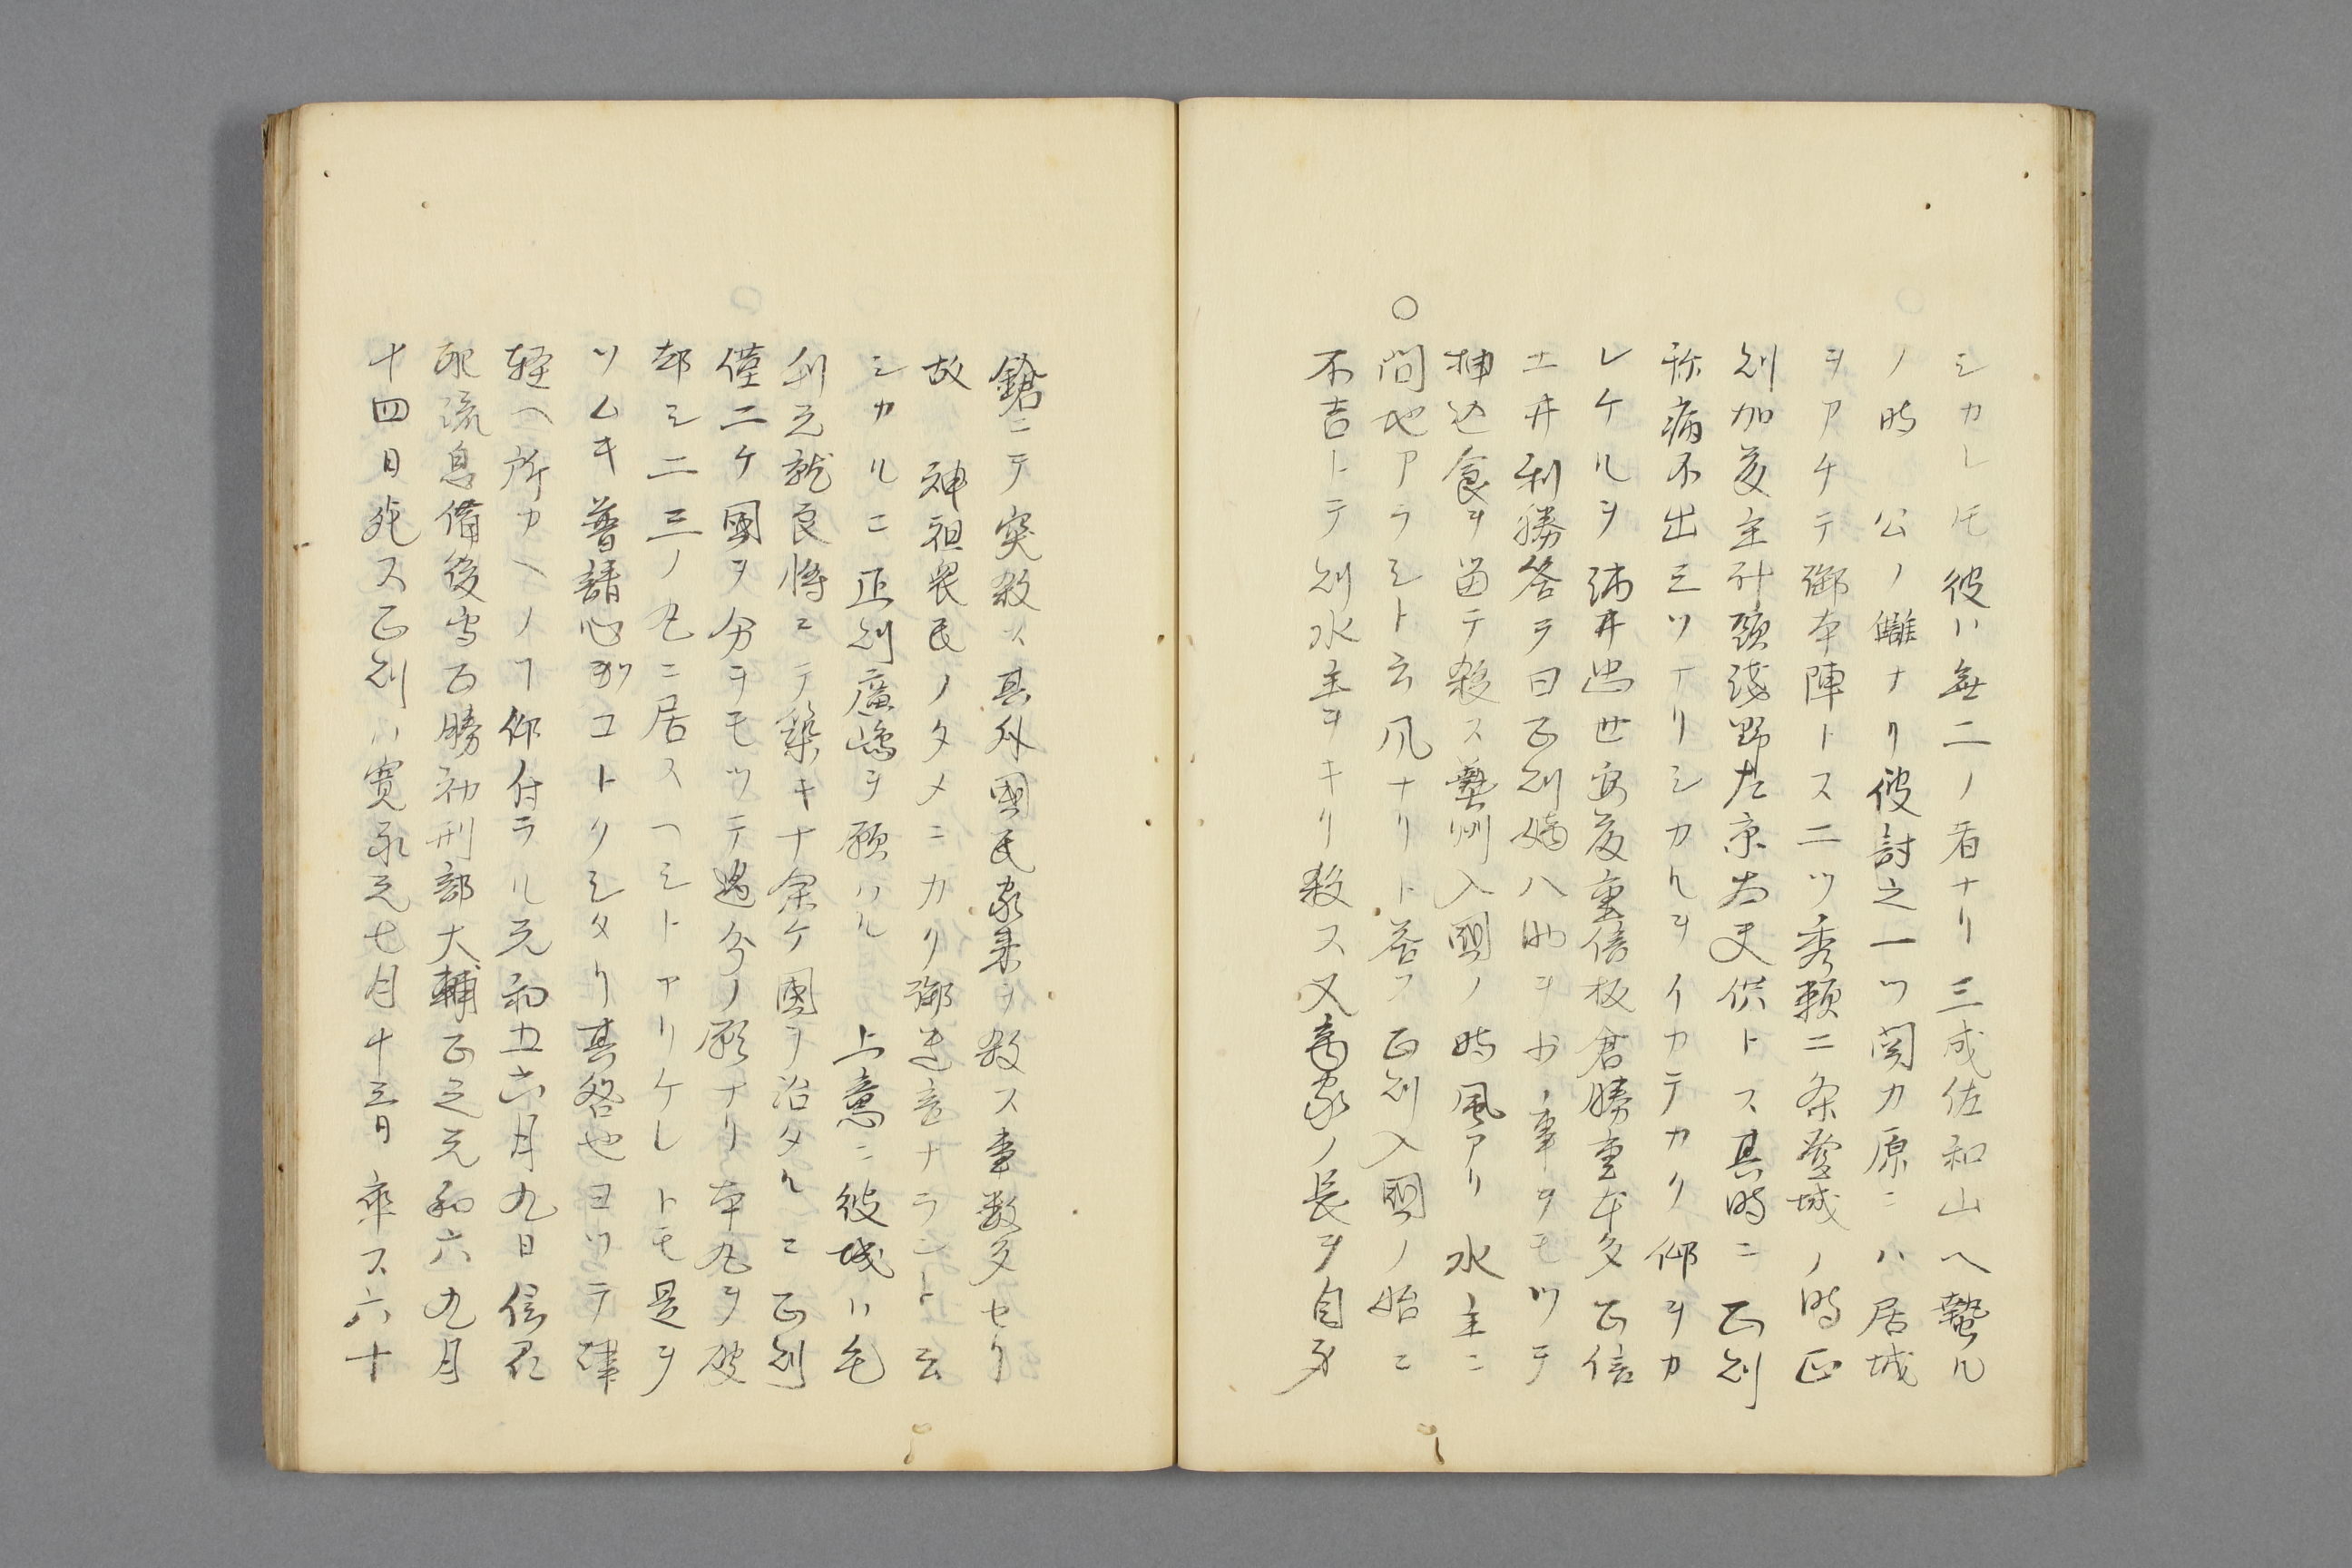 シカレ𪜈彼ハ無二ノ者ナリ三成佐和山ヘ蟄ル
ノ時　公ノ讎ナリ彼討之一ツ関カ原ニハ居城
ヲアケテ御本陣トス二ツ秀頼二条登城ノ時正
則加藤主計頭浅野左京大夫供トス其時ニ正則
称病不出三ツナリシカルヲイカテカク仰ヲカ
レケルヲ酒井忠世安藤重信板倉勝重本多正信
土井利勝答テ曰正則嫡八助ヲ少ノ事ヲモツテ
押込食ヲ留テ殺ス藝州入國ノ時風アリ水主ニ
〇問地アラシト云凩ナリト答フ正則入國ノ始ニ
不吉トテ則水主ヲキリ殺ス又寺家ノ長ヲ自身
鎗ニテ突殺ス其外國民家来ヲ殺ス事数多セリ
故　神祖畏民ノタメニカク御遠意ナラント云
シカルニ正則廣嶋ヲ願ハル　上意ニ彼城ハ毛
利元就良將ニテ築キ十余ケ國ヲ治タルニ正則
僅二ケ國ヲ分ヲモツテ過分ノ願ナリ本丸ヲ破
却シ二三ノ丸ニ居スヘシトアリケレトモ是ヲ
ツムキ普請心カケコトクシタリ其咎也ヨツテ津
軽ヘ所カヘノ𬼀仰付ラル元和五六月九日信州
配流息備後守正勝初刑部大輔正之元和六九月
十四日死ス正則ハ寛永元七月十三日卒ス六十